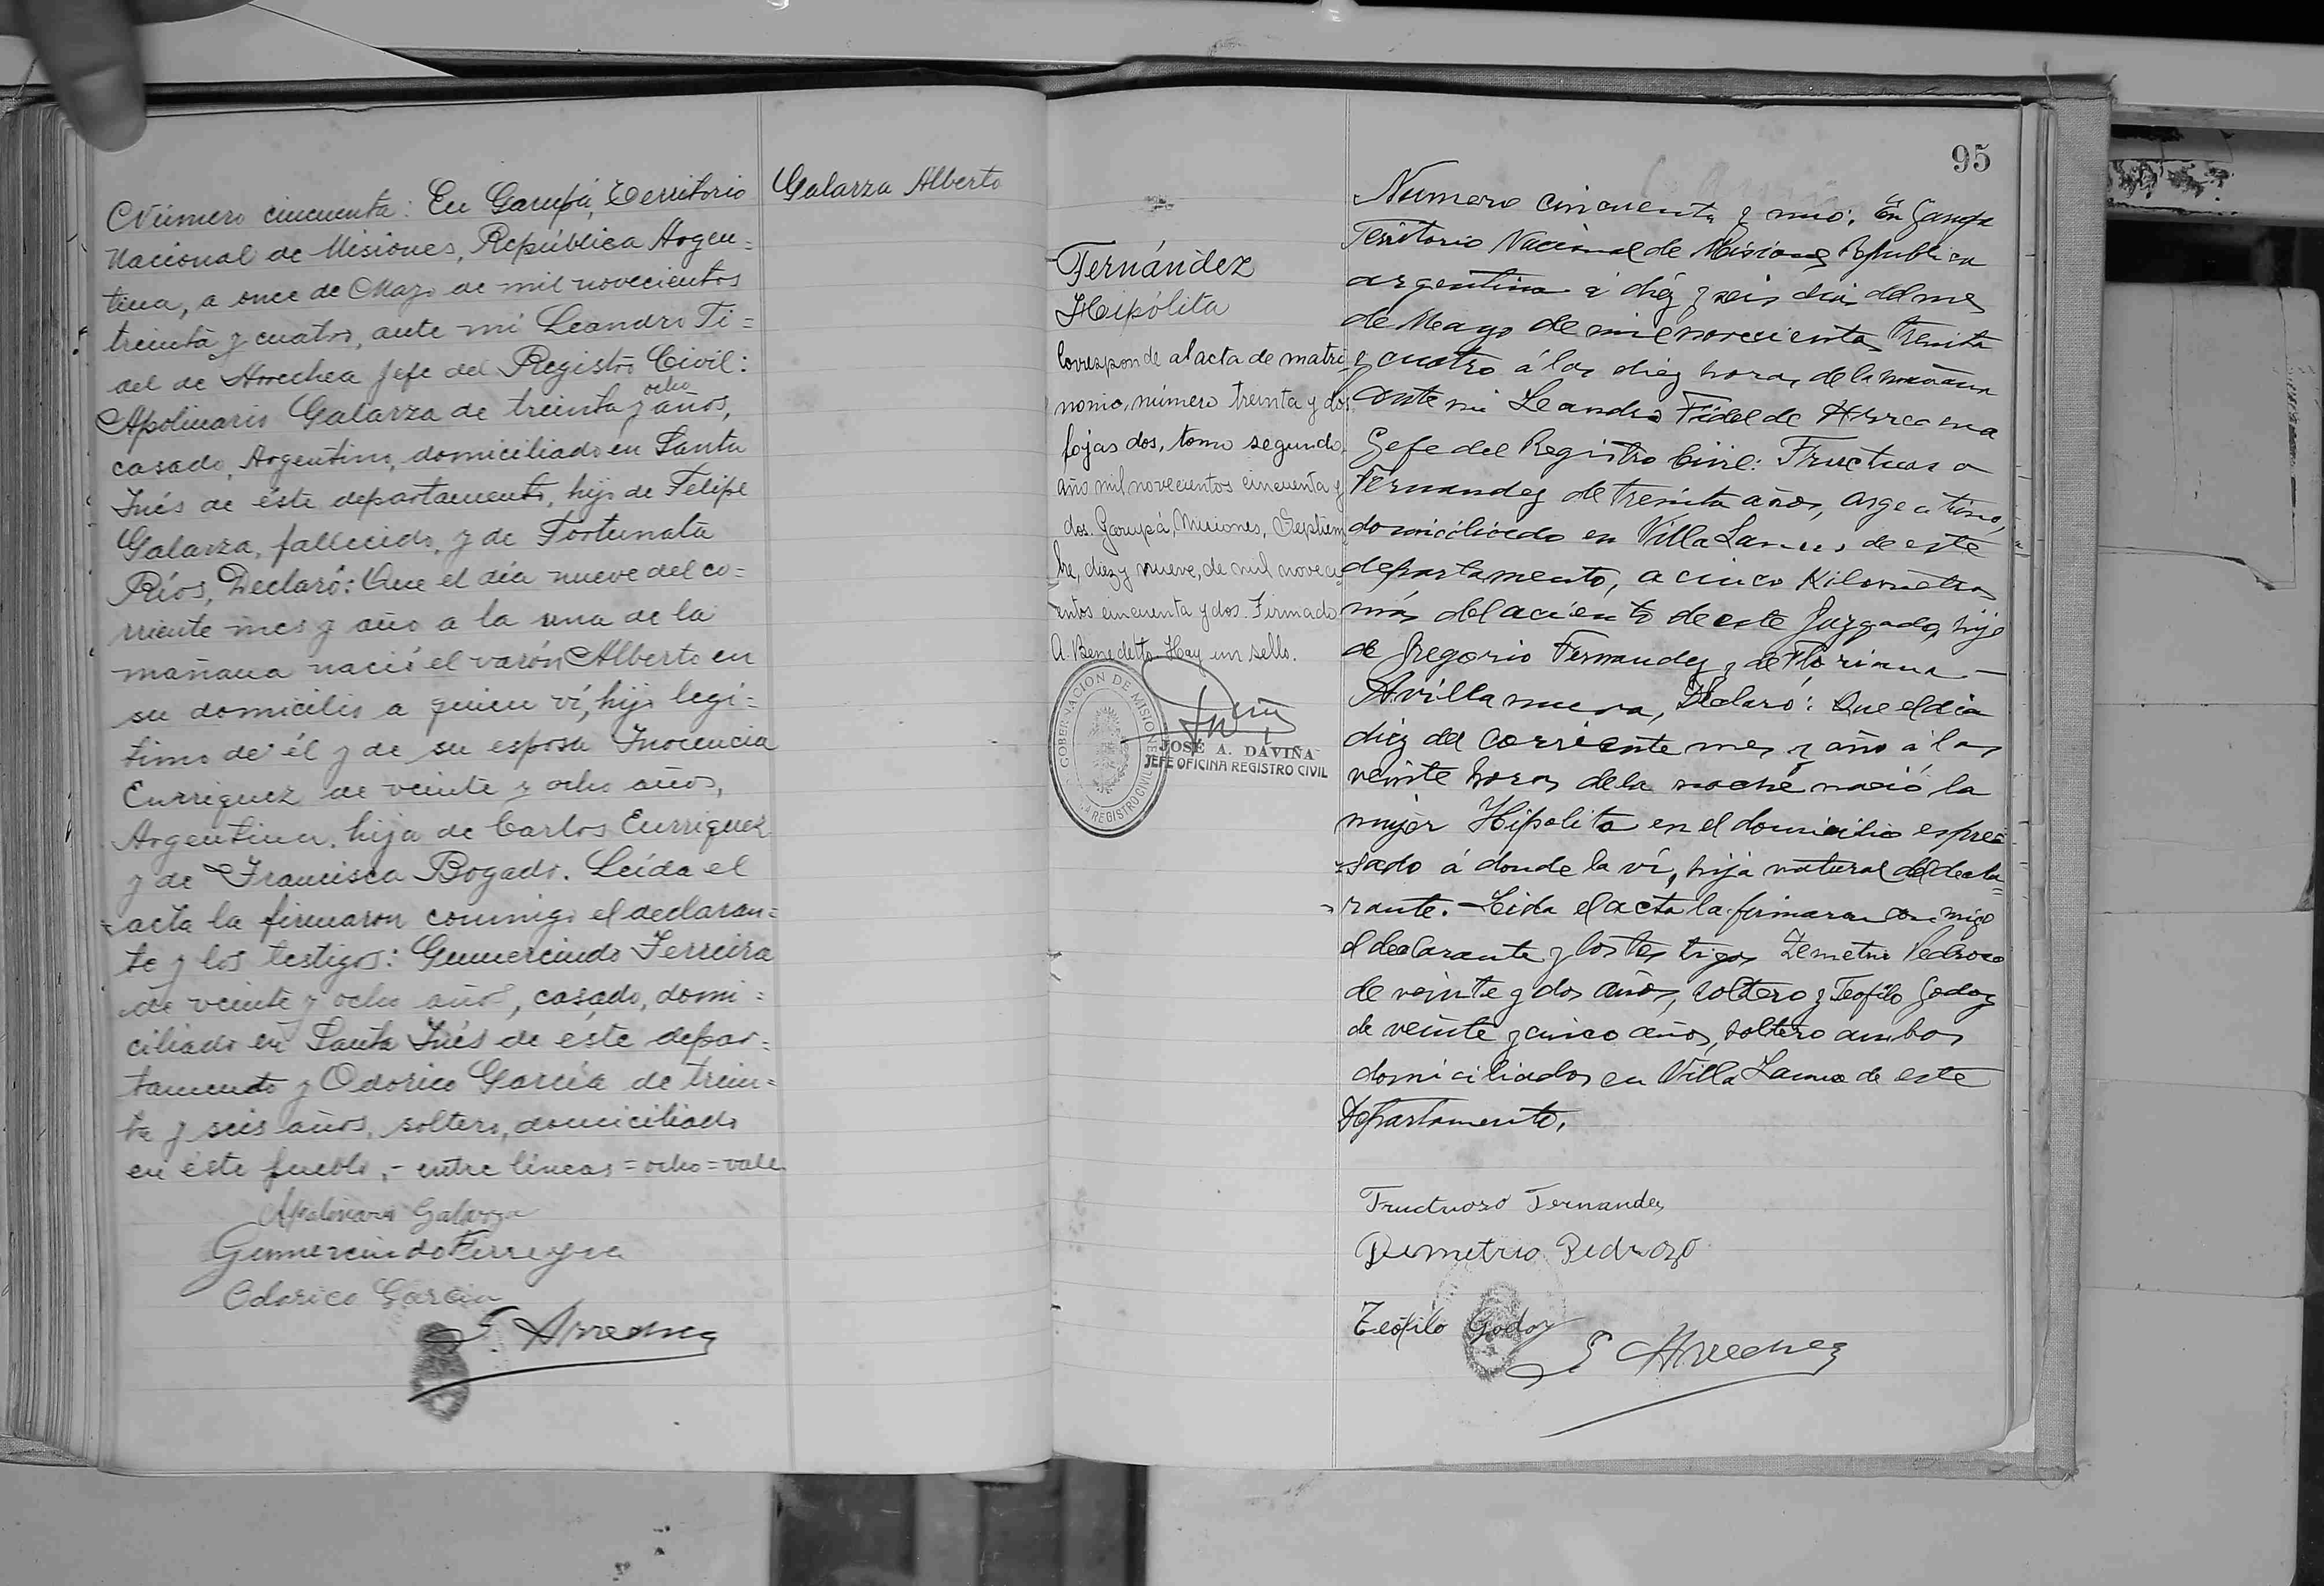 Número cincuenta: En Garupá, Territorio
Nacional de Misiones, República Argen=
tina, a once de Mayo de mil novecientos
treinta y cuatro, ante mi Leandro Fi=
del de Arrechea Jefe del Registro Civil:
ocho
Apolinario Galarza de treinta y años,
casado, Argentino, domiciliado en Santa
Inés de éste departamento, hijo de Felipe
Galarza, fallecido, y de Fortunata
Ríos, Declaró: Que el día nueve del co=
rriente mes y año a la una de la
mañana nació el varón Alberto en
su domicilio a quien ví, hijo legí=
timo de él y de su esposa Inocencia
Enrriquez de veinte y ocho años,
Argentina, hija de Carlos Enrriquez
y de Francisca Bogado. Leída el
acta la firmaron conmigo el declaran=
te y los testigos: Gumercindo Ferreira
de veinte y ocho años, casado, domi=
ciliado en Santa Inés de este depar=
tamento y Odorico García de trein=
ta y seis años, soltero, domiciliado
en éste pueblo,- entre líneas=ocho=vale
Apolinario Galarza
Gumercindo Ferreyra
Odorico Garcia
Arrechea
Galarza Alberto
Fernández
Hipólita
Corresponde al acta de matri
monio, número treinta y dos
fojas dos, tomo segundo
año mil novecientos cincuenta y
dos. Garupá, Misiones, Septiem
bre, diez y nueve, de mil noveci
entos cincuenta y dos. Firmado
A. Benedetto. Hay un sello.
GOBERNACION DE MISIONES
REGISTRO CIVIL
JOSÉ A. DAVIÑA
JEFE OFICINA REGISTRO CIVIL
95
Numero cincuenta y uno: En Garupa
Territorio Nacional de Misiones Republica
argentina á diéz y seis dia del mes
de Mayo de mil novecientos treinta
y cuatro á las diez horas de la mañana
ante mi Leandro Fidel de Arrechea
Gefe del Registro Civil: Fructuoso
Fernandez de treinta años, argentino,
domiciliado en Villa Lanus de este
departamento, a cinco Kilometros
más del aciento de este Juzgado, hijo
de Gregorio Fernandez y de Floriana —
Avillanueva, Declaró: Que el dia
diez del corriente mes y año á las
veinte horas de la noche nació la
mujer Hipolita en el domicilio espre=
=sado á donde la ví, hija natural del decla=
=rante. - Leida el acta la firmaron conmigo
el declarante y los testigos Demetrio Pedrozo
de veinte y dos años, soltero y Teofilo Godoy
de veinte y cinco años, soltero ambos
domiciliados en Villa Lanus de este
Departamento.
Fructuoso Fernandez
Demetrio Pedrozo
Teófilo Godoy
Arrechea